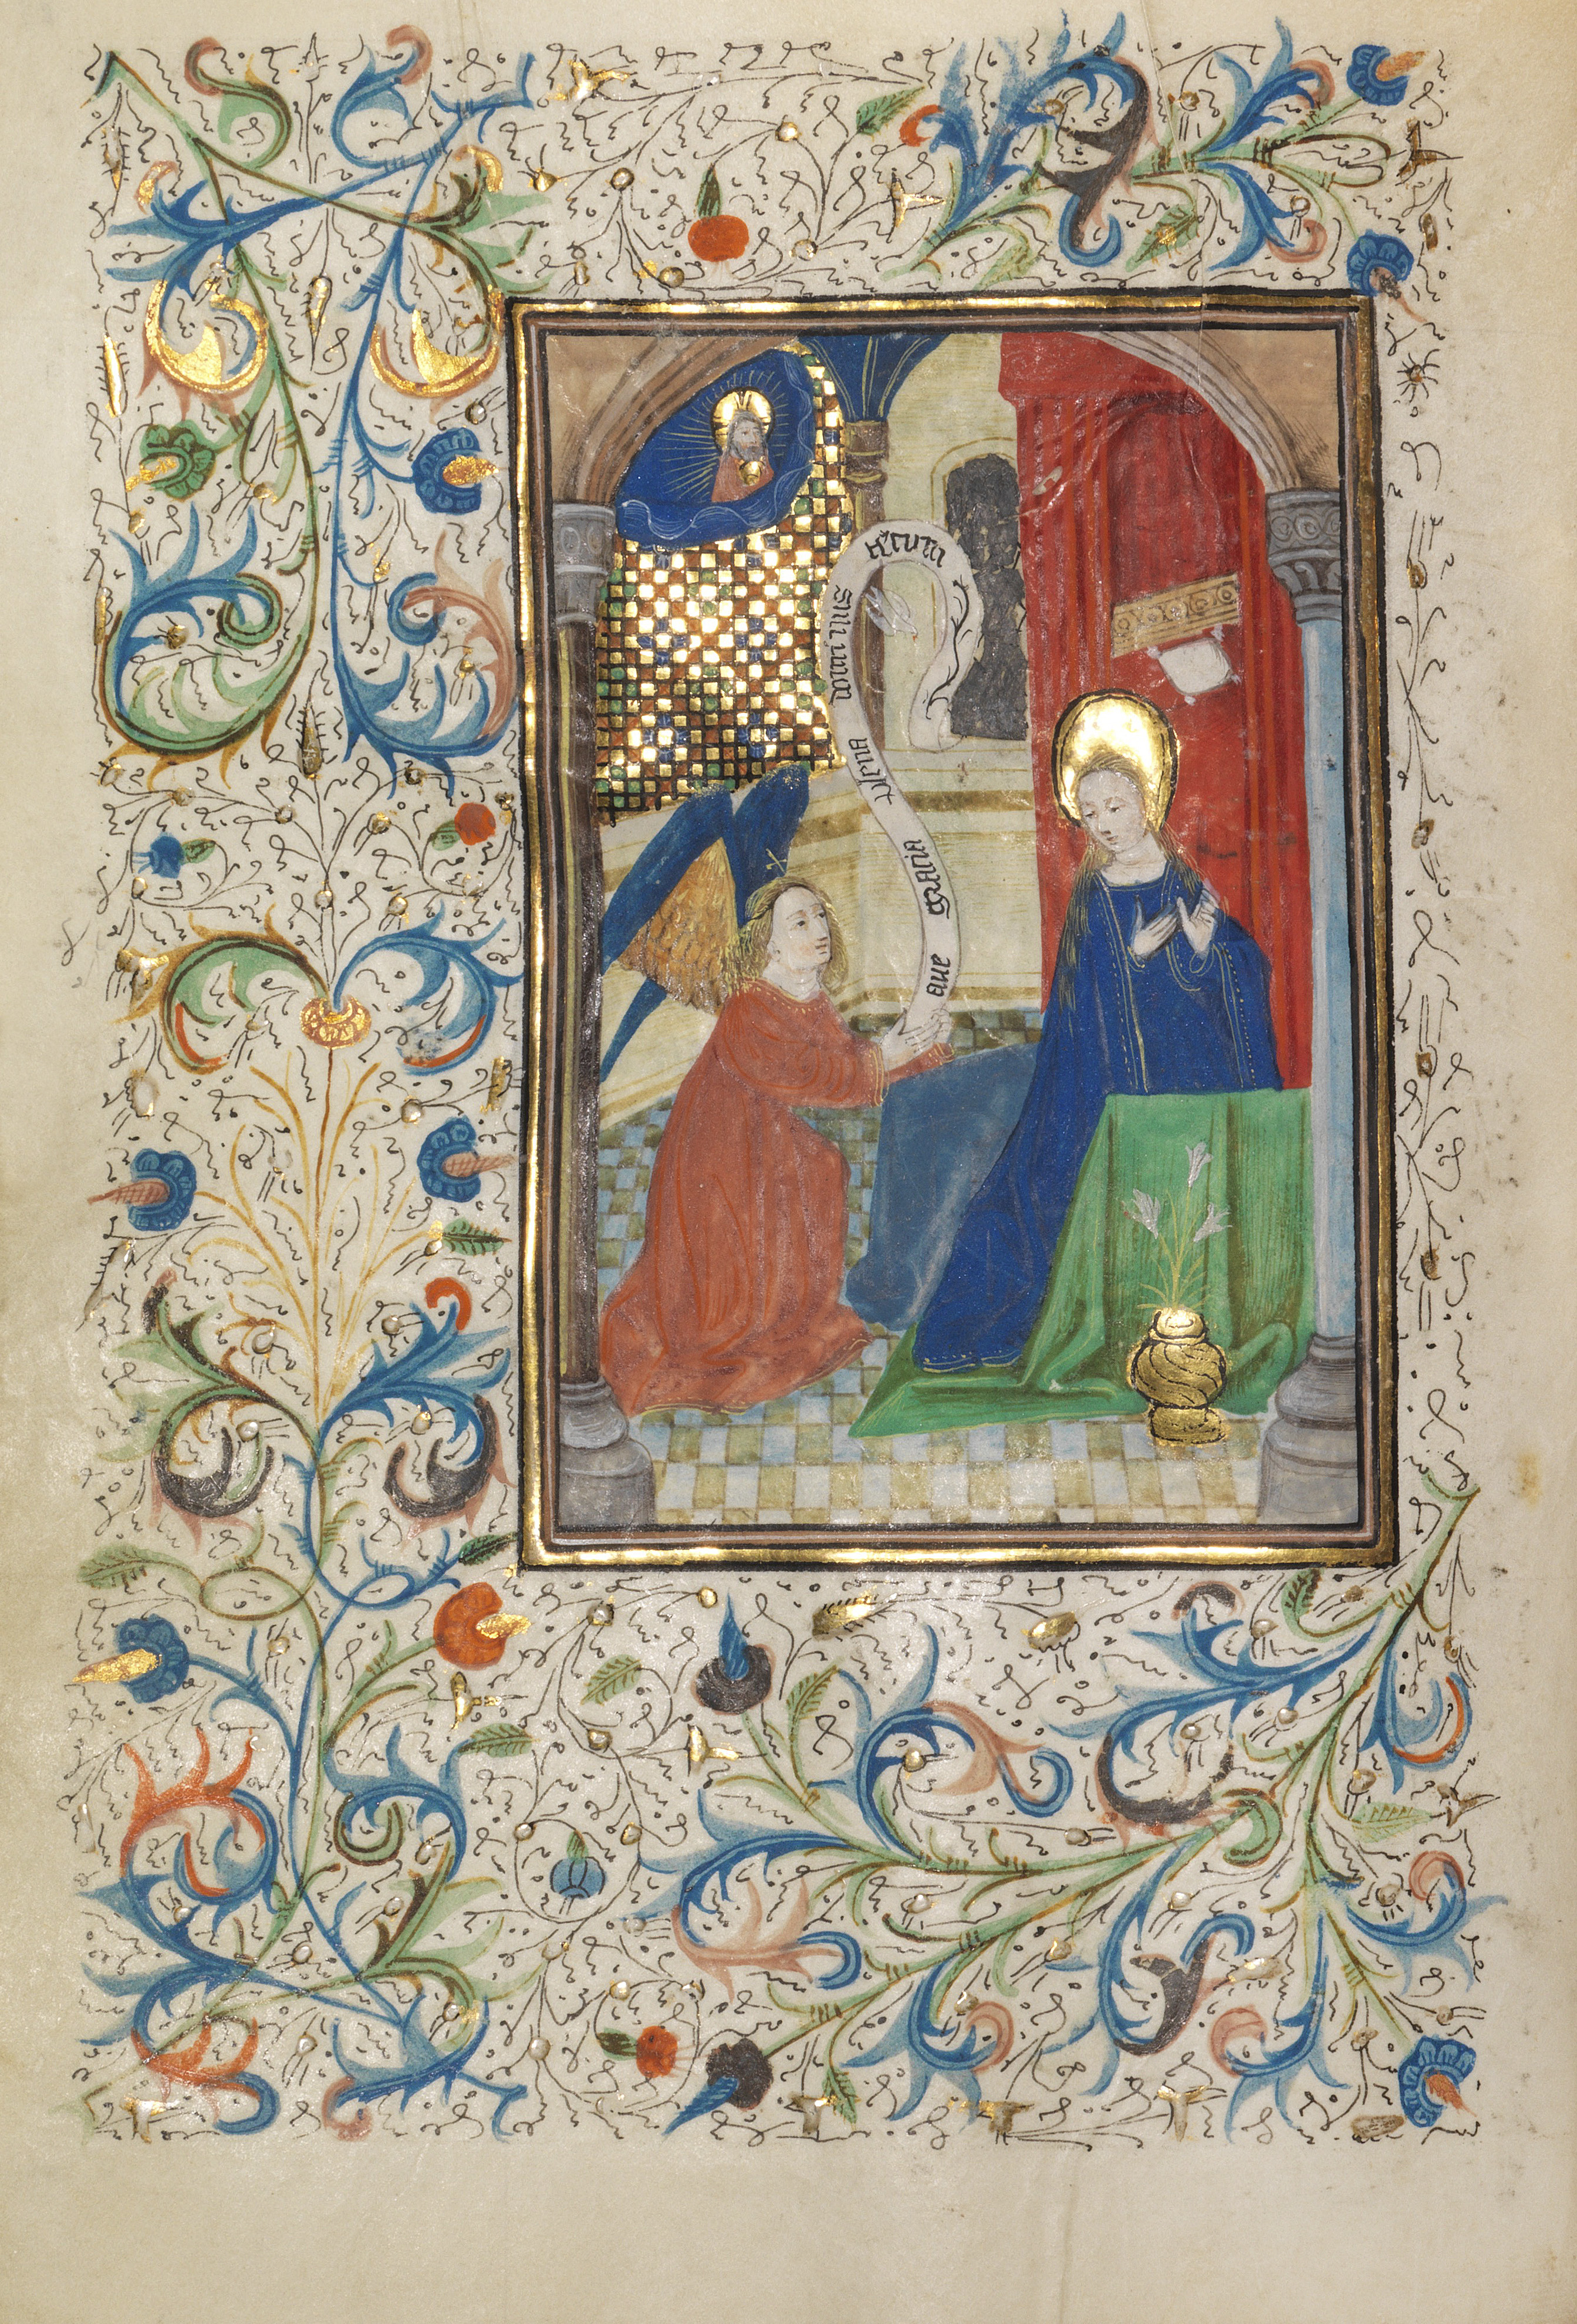 aue gracia plena dominus tecum